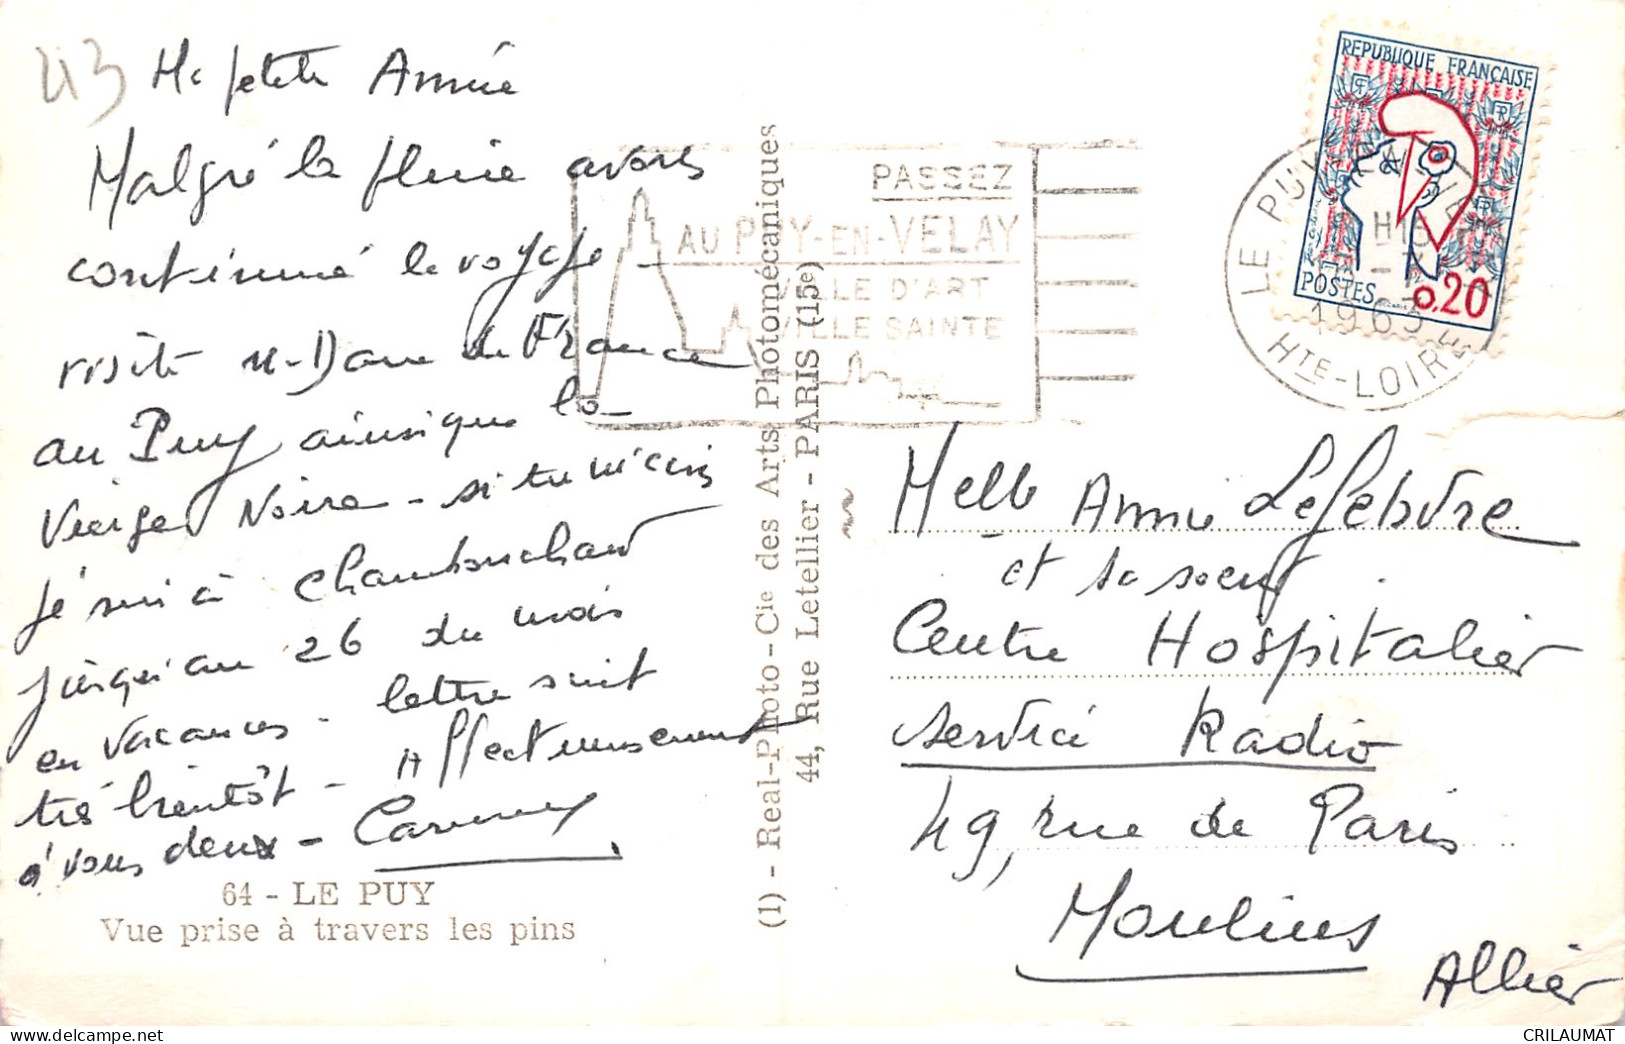 43
Ma petite Annie
Malgré la pluie avons
continué le voyage -
visité N-Dame de France
au Puy ainsi que la
Vierge Noire - si tu m'écris
je suis à Chambonchard
jusqu'au 26 du mois
en vacances - lettre suit
très bientôt - Affectueusement
à vous deux -
64 - LE PUY
Vue prise à travers les pins
(1) - Real-Photo - Cie des Arts Photomécaniques
44, Rue Letellier - PARIS (15e)
PASSEZ
AU PUY-EN-VELAY
VILLE D'ART
VILLE SAINTE
REPUBLIQUE FRANÇAISE
POSTES
0,20
LE PUY-EN-VELAY
1963
HTE-LOIRE
Melle Annie Lefebvre
et sa soeur
Centre Hospitalier
Service Radio
49, rue de Paris
Moulins
Allier
CRILAUMAT